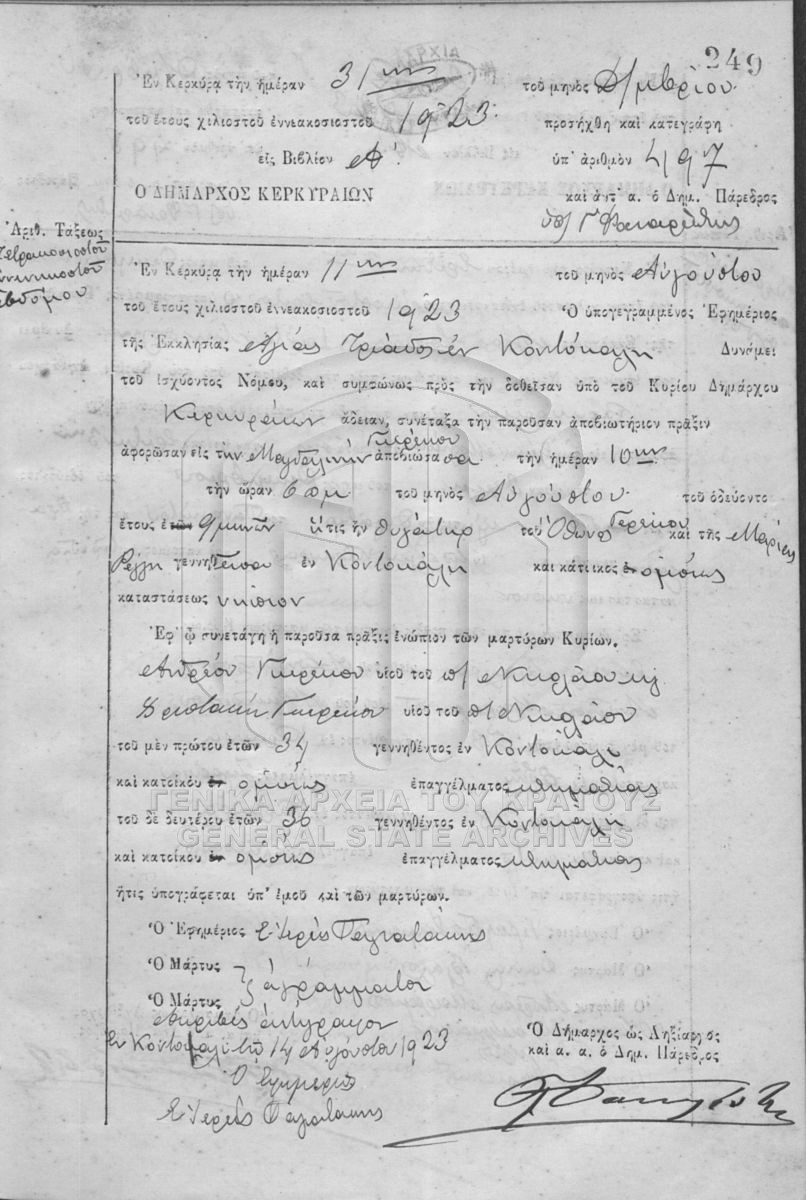 249
Ἐν Κερκύρᾳ τὴν ἡμέραν 31ην τοῦ μηνὸς Δ/μβρίου
τοῦ ἔτους χιλιοστοῦ ἐννεακοσιοστοῦ 1923 προσήχθη καὶ κατεγράφη
εἰς Βιβλίον Α΄. ὑπ' ἀριθμὸν 497
Ο ΔΗΜΑΡΧΟΣ ΚΕΡΚΥΡΑΙΩΝ καὶ ἀντ' α. ὁ Δημ. Πάρεδρος
Ἀριθ. Τάξεως
Τετρακοσιοστοῦ
ἐννενηκοστοῦ
ἑβδόμου
Ἐν Κερκύρᾳ τὴν ἡμέραν 11ην τοῦ μηνὸς Αὐγούστου
τοῦ ἔτους χιλιοστοῦ ἐννεακοσιοστοῦ 1923 Ὁ ὑπογεγραμμένος Ἐφημέριος
τῆς Ἐκκλησίας Ἁγίας Τριάδος ἐν Κοντόκαλη Δυνάμει
τοῦ ἰσχύοντος Νόμου, καὶ συμφώνως πρὸς τὴν δοθεῖσαν ὑπὸ τοῦ Κυρίου Δημάρχου
Κερκυραίων ἄδειαν, συνέταξα τὴν παροῦσαν ἀποβιωτήριον πρᾶξιν
ἀφορῶσαν εἰς τὴν Μαγδαληνὴν Γκερέκου ἀποβιώσασα τὴν ἡμέραν 10ην
τὴν ὥραν 6 πμ τοῦ μηνὸς Αὐγούστου τοῦ ὁδεύοντο
ἔτους ἐτῶν 9 μηνῶν ἥτις ἦν θυγάτηρ τοῦ Ὄθωνος Γκερέκου καὶ τῆς Μαρίας
γεννηθεῖσα ἐν Κοντόκαλη καὶ κάτοικος ἐν ὁμοίως
καταστάσεως νήπιον
Ἐφ' ᾧ συνετάγη ἡ παροῦσα πρᾶξις ἐνώπιον τῶν μαρτύρων Κυρίων.
Ἀνδρέου Γκερέκου υἱοῦ τοῦ π/ Νικολάου κ
Γκερέκου υἱοῦ τοῦ π/ Νικολάου
τοῦ μὲν πρώτου ἐτῶν 34 γεννηθέντος ἐν Κοντόκαλη
καὶ κατοίκου ἐν ὁμοίως ἐπαγγέλματος κτηματίας
τοῦ δὲ δευτέρου ἐτῶν 36 γεννηθέντος ἐν Κοντόκαλη
καὶ κατοίκου ἐν ὁμοίως ἐπαγγέλματος κτηματίας
ἥτις ὑπογράφεται ὑπ' ἐμοῦ καὶ τῶν μαρτύρων.
Ὁ Ἐφημέριος
Ὁ Μάρτυς
Ὁ Μάρτυς } ἀγράμματοι
Ἀκριβὲς ἀντίγραφον
Ἐν Κοντόκαλι τῇ 14 Αὐγούστου 1923
Ὁ Ἐφημέριος
Ὁ Δήμαρχος ὡς Ληξίαρχος
καὶ α. α. ὁ Δημ. Πάρεδρος
ΓΕΝΙΚΑ ΑΡΧΕΙΑ ΤΟΥ ΚΡΑΤΟΥΣ
GENERAL STATE ARCHIVES